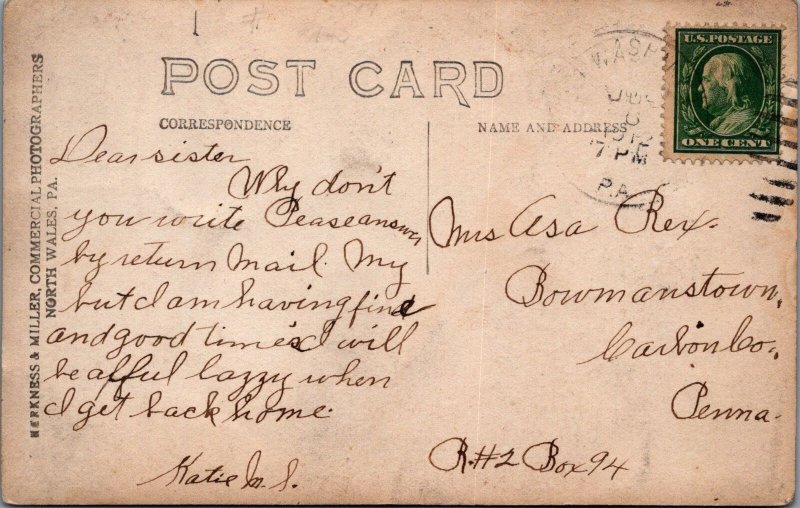 POST CARD
CORRESPONDENCE
NAME AND ADDRESS
HARKNESS & MILLER, COMMERCIAL PHOTOGRAPHERS
NORTH WALES, PA.
U.S. POSTAGE
ONE CENT
WASH
7 PM
PA.
Dear sister
Why don't
you write Pease answer
by return Mail. My
but I am having fine
and good times I will
be alful lazzy when
I get back home.
Katie M. S.
Mrs Asa Rex.
Bowmanstown,
Carbon Co.,
Penna.
R.#2 Box 94